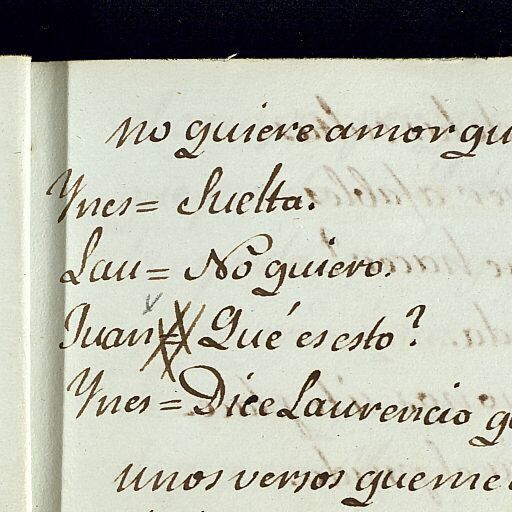 no quiere amor qu
Ynes = Suelta.
Lau = No quiero.
Juan = Qué es esto?
Ynes = Dice Laurencio q
unos versos que me